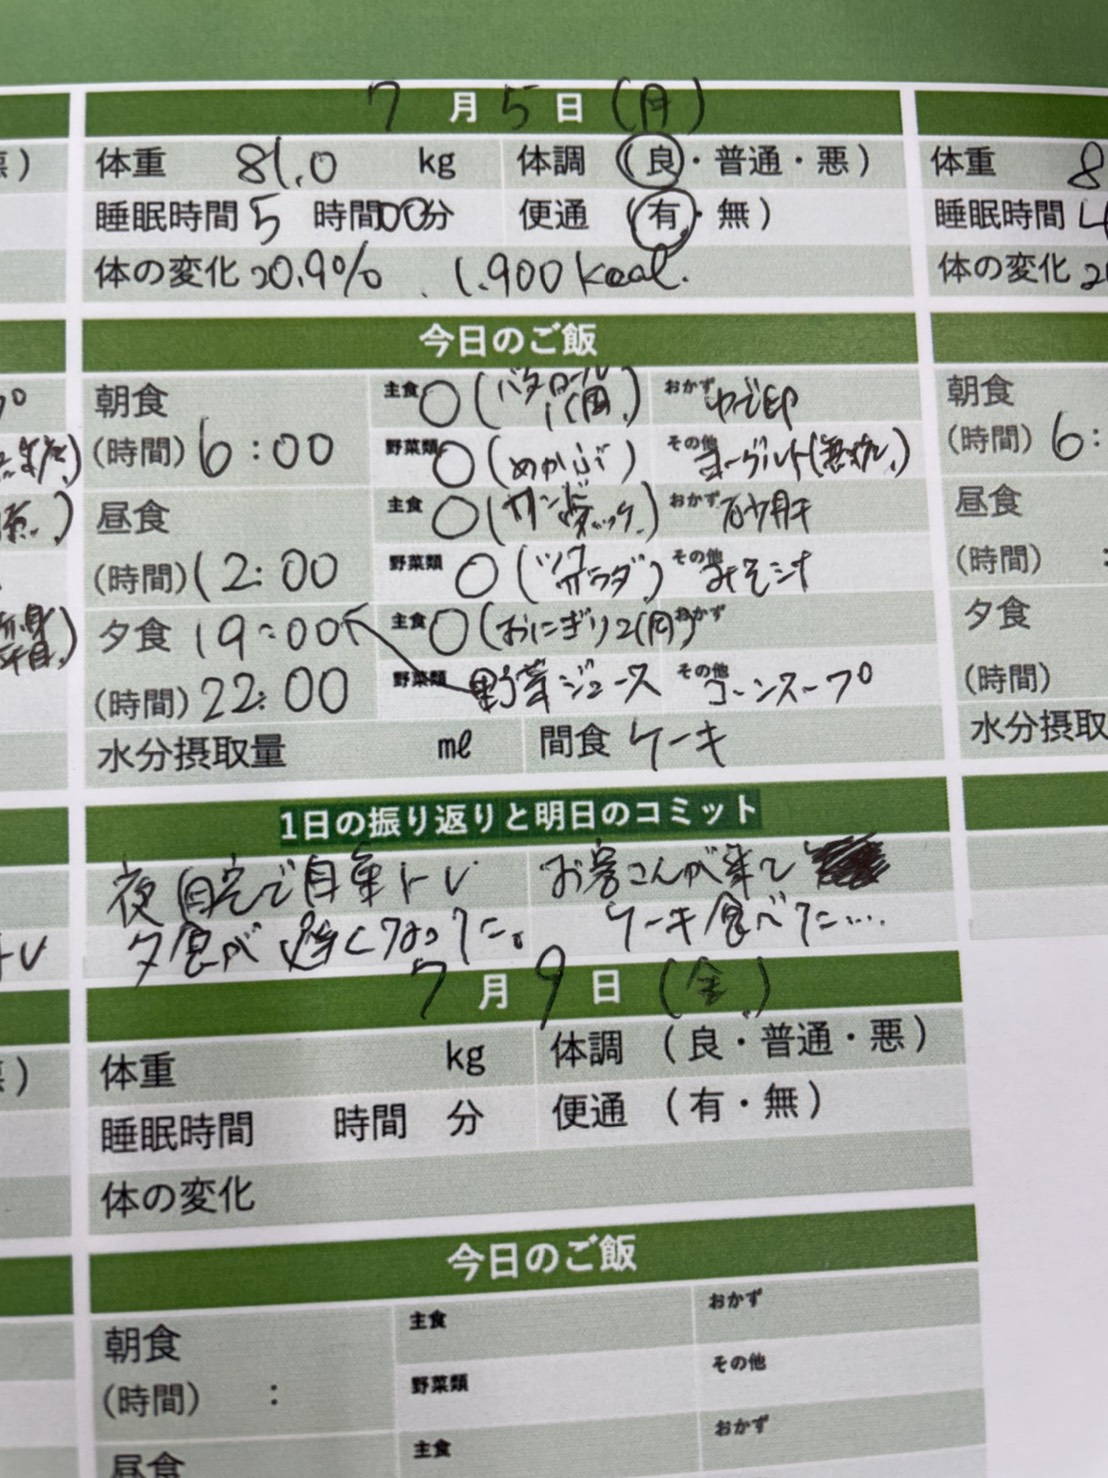 7月5日(月)
悪)
体重 81.0 kg 体調 (良・普通・悪)
体重 8
睡眠時間 5 時間00分 便通 (有・無)
睡眠時間 4
体の変化 20.9% 1,900kcal.
体の変化 2
今日のご飯
朝食 主食 ○(バターロール1個) おかず ゆで卵
朝食
(時間) 6:00 野菜類 ○(めかぶ) その他 ヨーグルト(無糖)
(時間) 6:
昼食 主食 ○(サンド) おかず 砂肝
昼食
(時間) 12:00 野菜類 ○(ツナサラダ) その他 みそ汁
(時間) :
夕食 19:00 主食 ○(おにぎり2個) おかず
夕食
(時間) 22:00 野菜類 野菜ジュース その他 コーンスープ
(時間)
水分摂取量 ml 間食 ケーキ
水分摂取
1日の振り返りと明日のコミット
夜自宅で自重トレ お客さんが来て
夕食が遅くなった。 ケーキ食べた…
7月9日(金)
悪)
体重 kg 体調 (良・普通・悪)
睡眠時間 時間 分 便通 (有・無)
体の変化
今日のご飯
朝食 主食 おかず
(時間) : 野菜類 その他
昼食 主食 おかず